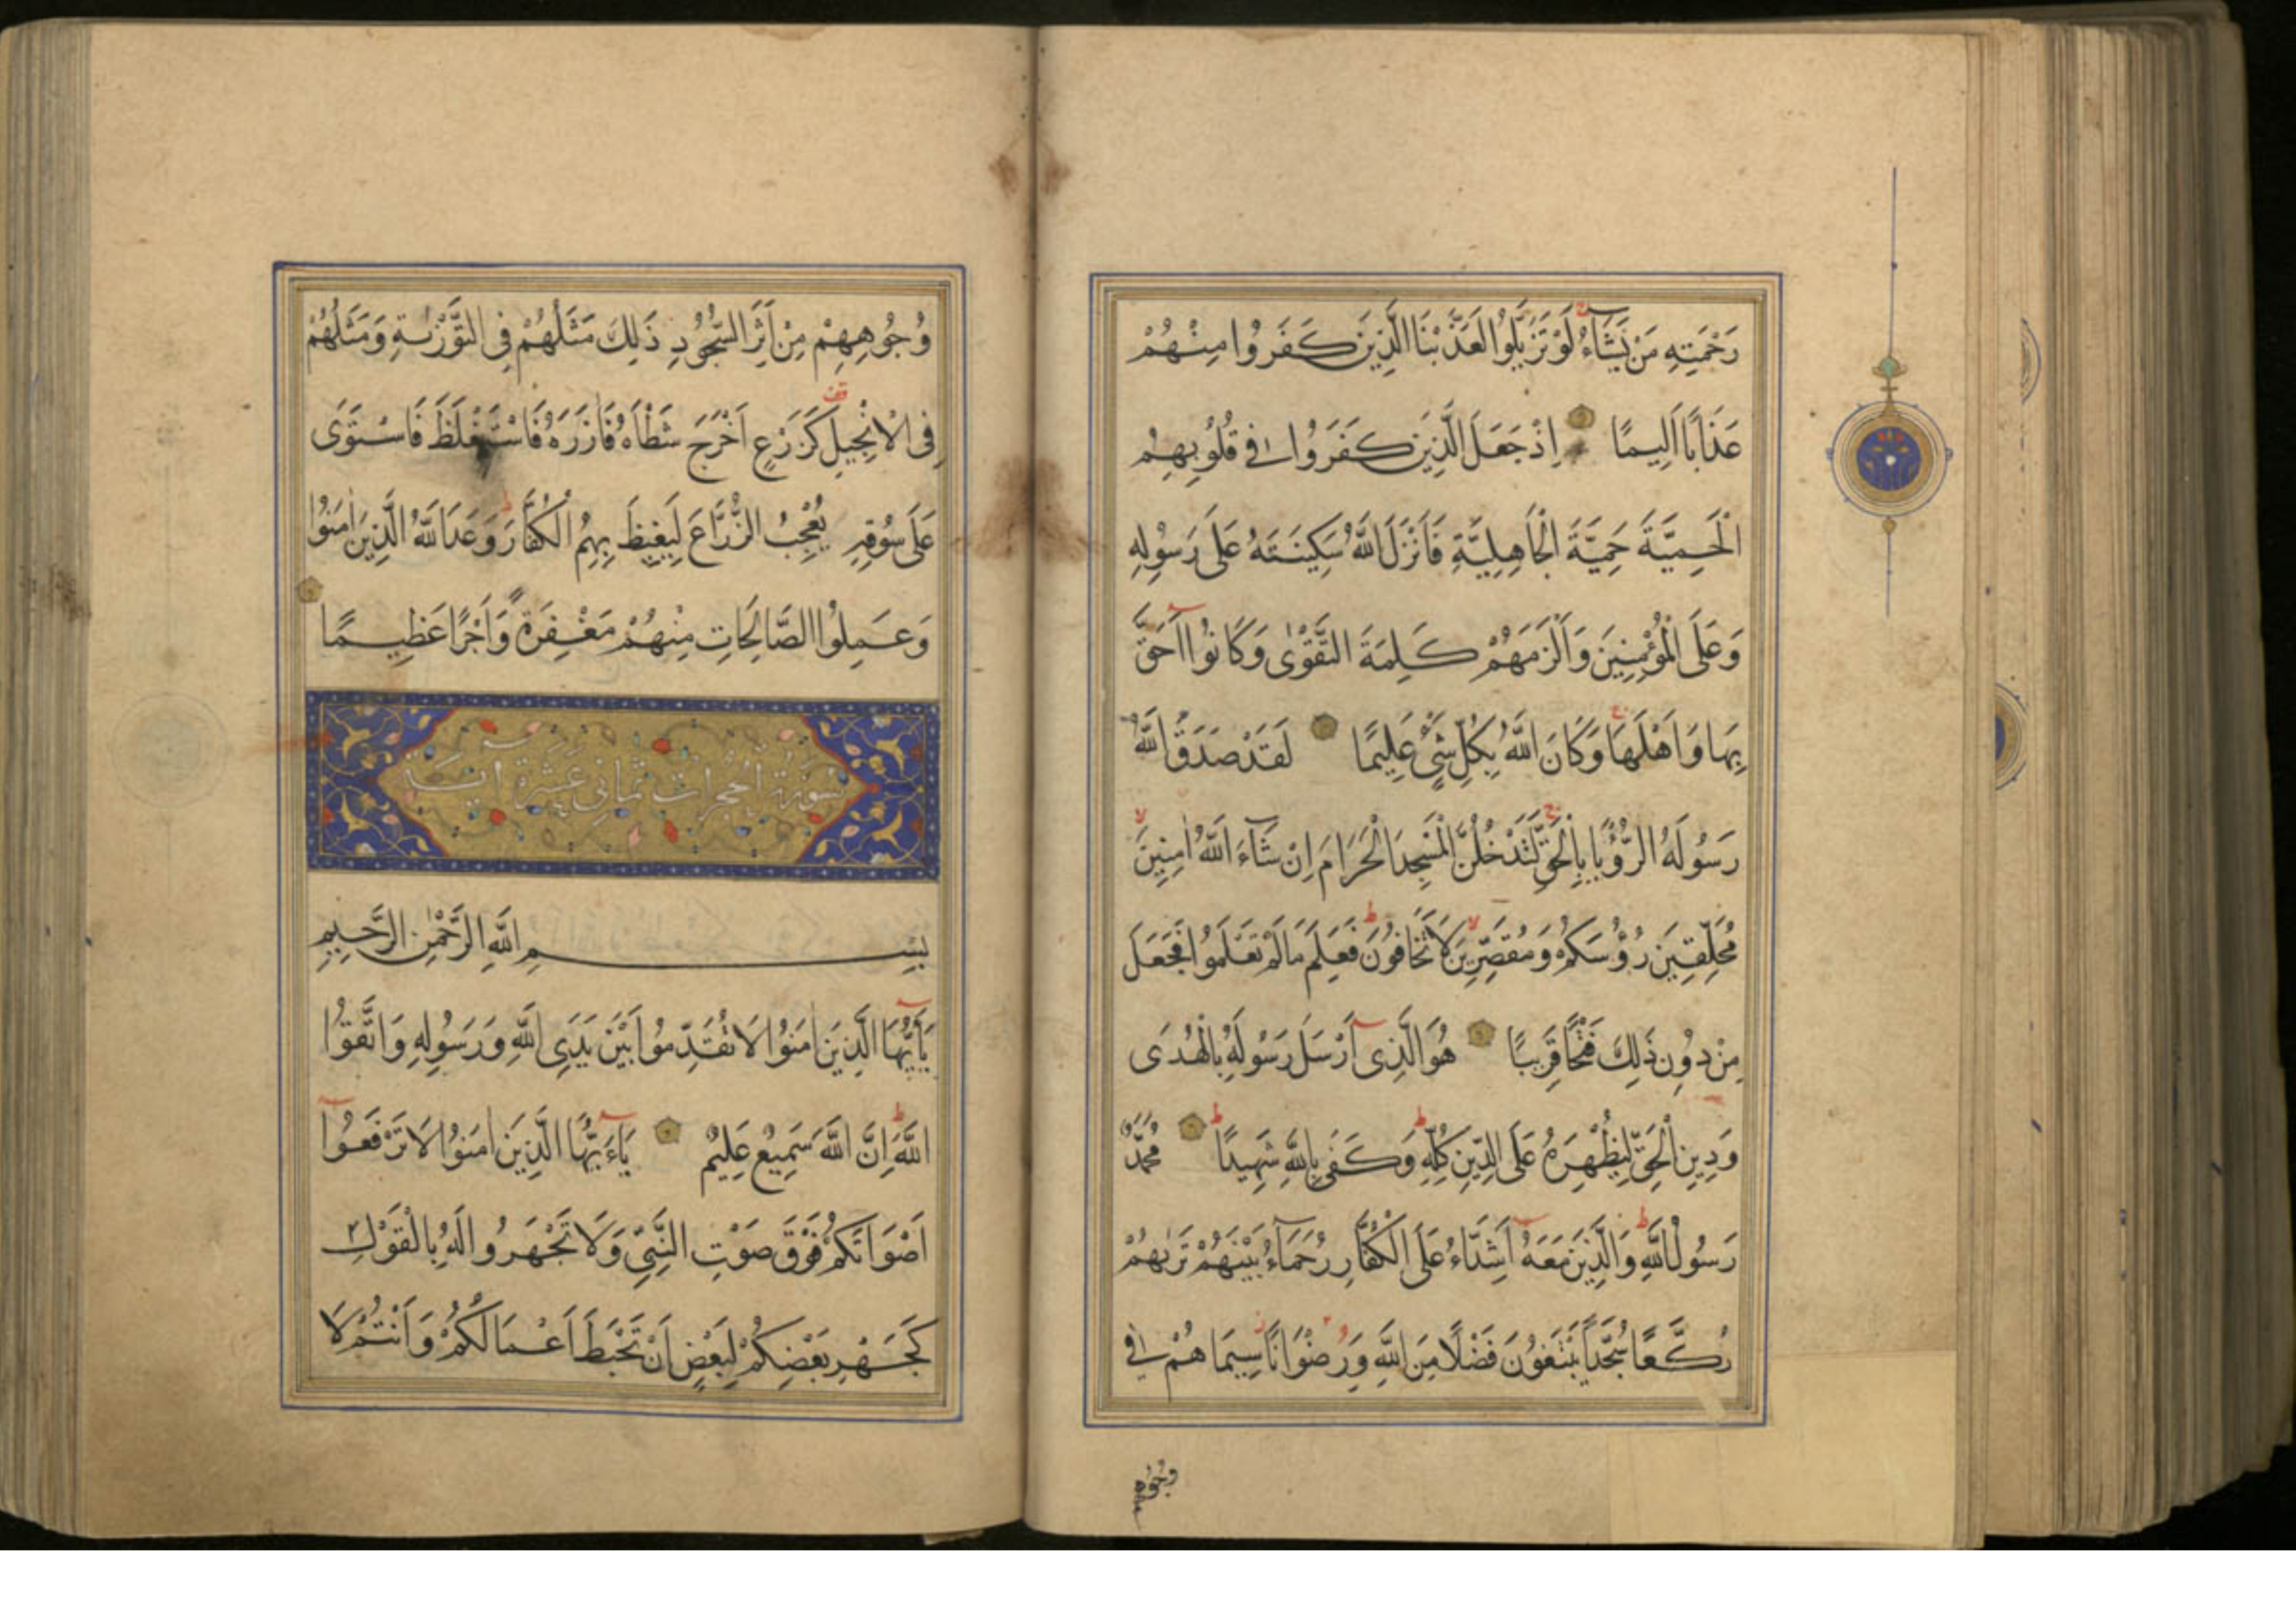 رَحْمَتِهِ مَنْ يَشَاءُ لَوْ تَزَيَّلُوا لَعَذَّبْنَا الَّذِينَ كَفَرُوا مِنْهُمْ
عَذَابًا اَلِيمًا اِذْ جَعَلَ الَّذِينَ كَفَرُوا فِي قُلُوبِهِمُ
الْحَمِيَّةَ حَمِيَّةَ الْجَاهِلِيَّةِ فَاَنْزَلَ اللَّهُ سَكِينَتَهُ عَلَى رَسُولِهِ
وَعَلَى الْمُؤْمِنِينَ وَاَلْزَمَهُمْ كَلِمَةَ التَّقْوٰى وَكَانُوا اَحَقَّ
بِهَا وَاَهْلَهَا وَكَانَ اللَّهُ بِكُلِّ شَيْءٍ عَلِيمًا لَقَدْ صَدَقَ اللَّهُ
رَسُولَهُ الرُّؤْيَا بِالْحَقِّ لَتَدْخُلُنَّ الْمَسْجِدَ الْحَرَامَ اِنْ شَآءَ اللَّهُ اٰمِنِينَ
مُحَلِّقِينَ رُؤُسَكُمْ وَمُقَصِّرِينَ لَا تَخَافُونَ فَعَلِمَ مَا لَمْ تَعْلَمُوا فَجَعَلَ
مِنْ دُونِ ذَلِكَ فَتْحًا قَرِيبًا هُوَ الَّذِي اَرْسَلَ رَسُولَهُ بِالْهُدَى
وَدِينِ الْحَقِّ لِيُظْهِرَهُ عَلَى الدِّينِ كُلِّهِ وَكَفَى بِاللَّهِ شَهِيدًا مُحَمَّدٌ
رَسُولُ اللَّهِ وَالَّذِينَ مَعَهُ اَشِدَّاءُ عَلَى الْكُفَّارِ رُحَمَآءُ بَيْنَهُمْ تَرٰيهُمْ
رُكَّعًا سُجَّدًا يَبْتَغُونَ فَضْلًا مِنَ اللَّهِ وَرِضْوَانًا سِيمَاهُمْ فِي
وُجُوهِ
وُجُوهِهِمْ مِنْ اَثَرِ السُّجُودِ ذَلِكَ مَثَلُهُمْ فِي التَّوْرٰيةِ وَمَثَلُهُمْ
فِي الْاِنْجِيلِ كَزَرْعٍ اَخْرَجَ شَطْاَهُ فَاٰزَرَهُ فَاسْتَغْلَظَ فَاسْتَوَى
عَلَى سُوقِهِ يُعْجِبُ الزُّرَّاعَ لِيَغِيظَ بِهِمُ الْكُفَّارَ وَعَدَ اللَّهُ الَّذِينَ اٰمَنُوا
وَعَمِلُوا الصَّالِحَاتِ مِنْهُمْ مَغْفِرَةً وَاَجْرًا عَظِيمًا
سورة الحجرات ثمانى عشرة اية
بِسْمِ اللَّهِ الرَّحْمٰنِ الرَّحِيمِ
يَآ اَيُّهَا الَّذِينَ اٰمَنُوا لَا تُقَدِّمُوا بَيْنَ يَدَيِ اللَّهِ وَرَسُولِهِ وَاتَّقُوا
اللَّهَ اِنَّ اللَّهَ سَمِيعٌ عَلِيمٌ يَآءَيُّهَا الَّذِينَ اٰمَنُوا لَا تَرْفَعُوا
اَصْوَاتَكُمْ فَوْقَ صَوْتِ النَّبِيِّ وَلَا تَجْهَرُوا لَهُ بِالْقَوْلِ
كَجَهْرِ بَعْضِكُمْ لِبَعْضٍ اَنْ تَحْبَطَ اَعْمَالُكُمْ وَاَنْتُمْ لَا